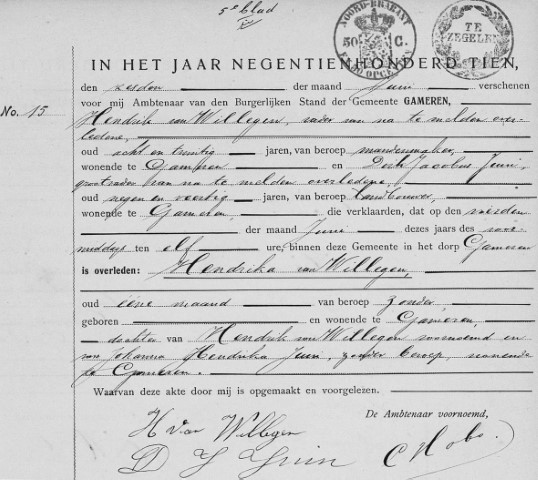 5e blad
NOORD-BRABANT
50 C.
TE ZEGELEN
IN HET JAAR NEGENTIENHONDERD TIEN,
den zesden der maand Juni verschenen
voor mij Ambtenaar van den Burgerlijken Stand der Gemeente GAMEREN,
No. 15
Hendrik van Willegen, vader van na te melden over-
ledene,
oud acht en twintig jaren, van beroep mandenmaker,
wonende te Gameren en Dirk Jacobus
grootvader van na te melden overledene,
oud negen en veertig jaren, van beroep landbouwer,
wonende te Gameren, die verklaarden, dat op den
der maand Juni dezes jaars des voor-
middags ten elf ure, binnen deze Gemeente in het dorp Gameren
is overleden: Hendrika van Willegen,
oud ééne maand van beroep zonder
geboren en wonende te Gameren,
dochter van Hendrik van Willegen voornoemd en
van Johanna Hendrika zonder beroep, wonende
te Gameren.
Waarvan deze akte door mij is opgemaakt en voorgelezen.
De Ambtenaar voornoemd,
H van Willegen
D J